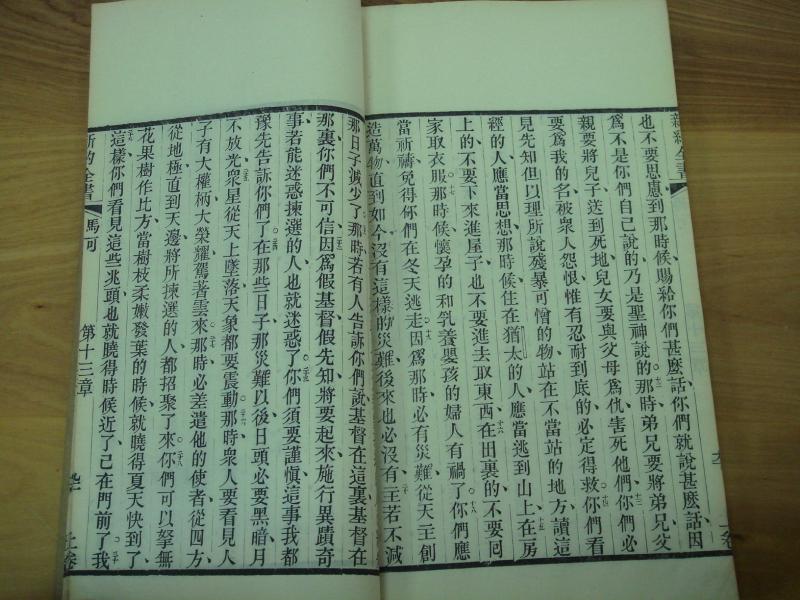 新約全書
也不要思慮到那時候賜給你們甚麽話你們就說甚麽話因
爲不是你們自己說的乃是聖神說的那時弟兄要將弟兄父
親要將兒子送到死地兒女要與父母爲仇害死他們你們必
要爲我的名被衆人怨恨惟有忍耐到底的必定得救你們看
見先知但以理所說殘暴可憎的物站在不當站的地方讀這
經的人應當思想那時候住在猶太的人應當逃到山上在房
上的不要下來進屋子也不要進去取東西在田裏的不要囘
家取衣服那時候懷孕的和乳養嬰孩的婦人有禍了你們應
當祈禱免得你們在冬天逃走因爲那時必有災難從天主創
造萬物直到如今沒有這樣的災難後來也必沒有主若不減
那日子減少了那時若有人告訴你們說基督在這裏基督在
那裏你們不可信因爲假基督假先知將要起來施行異蹟奇
事若能迷惑揀選的人也就迷惑了你們須要謹愼這事我都
豫先告訴你們了在那些日子那災難以後日頭必要黑暗月
不放光衆星從天上墜落天象都要震動那時衆人要看見人
子有大權柄大榮耀駕著雲來那時必差遣他的使者從四方
從地極直到天邊將所揀選的人都招聚了來你們可以拏無
花果樹作比方當樹枝柔嫩發葉的時候就曉得夏天快到了
這樣你們看見這些兆頭也就曉得時候近了已在門前了我
新約全書 馬可 第十三章